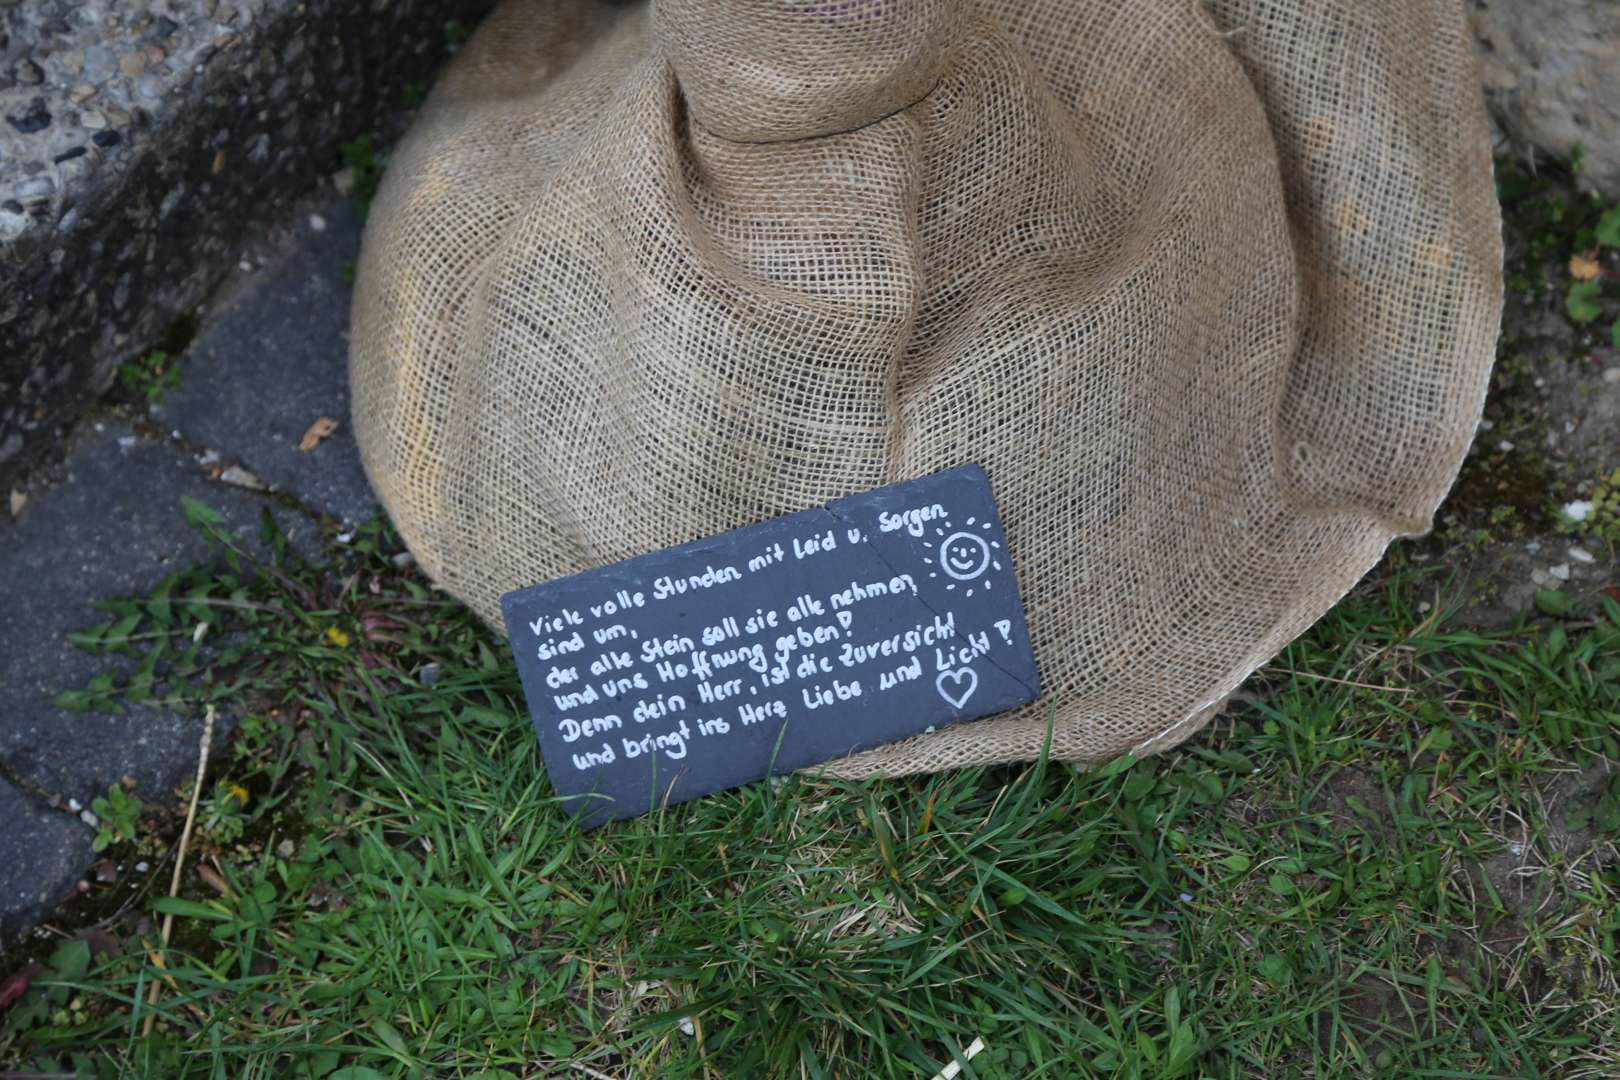 Viele volle Stunden mit Leid u. Sorgen
sind um,
der alte Stein soll sie alle nehmen,
und uns Hoffnung geben!
Denn dein Herr, ist die Zuversicht
und bringt ins Herz Liebe und Licht!